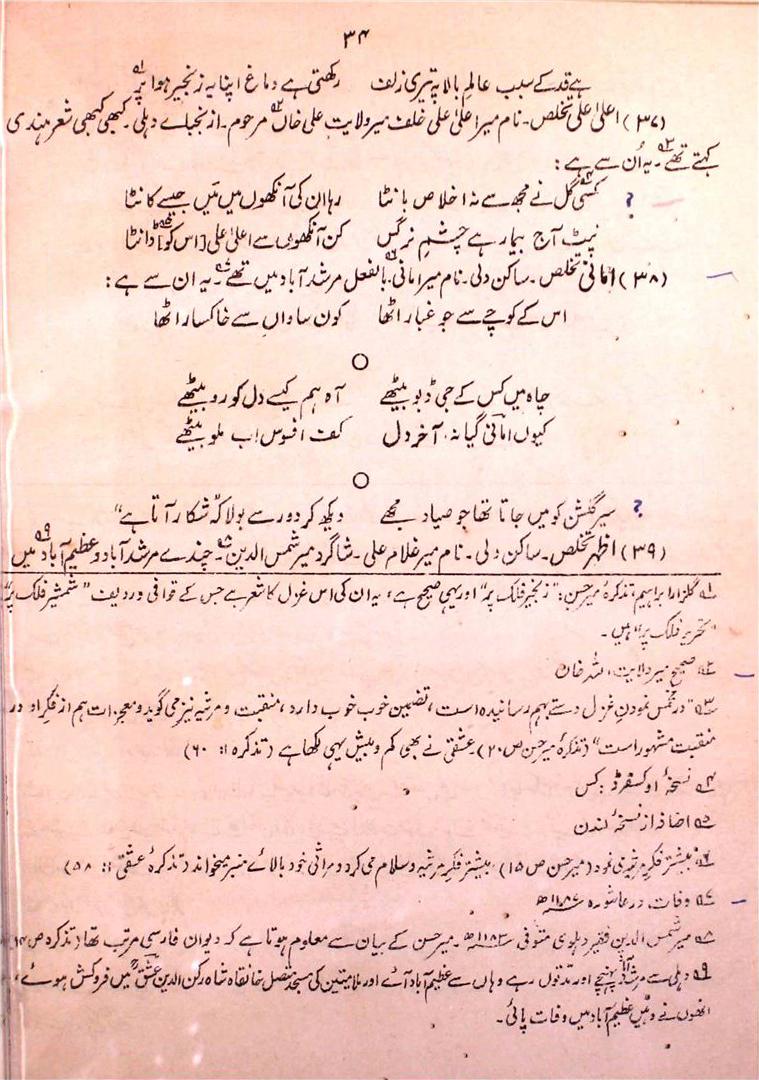 ۳۴
ہے قد کے سبب عالمِ بالا پہ تیری زلف رکھتی ہے دماغ اپنا یہ زنجیر ہوا پر ؎۱
(۳۷) اعلیٰ علی تخلص۔ نام میر اعلیٰ علی خلف میر ولایت علی خاں ؎۲ مرحوم۔ از نجباے دہلی۔ کبھی کبھی شعر ہندی
کہتے تھے ؎۳۔ یہ اُن سے ہے :
؟ کسی ؎۴ گل نے مجھ سے نہ اخلاص بانٹا رہا ان کی آنکھوں میں مَیں جیسے کانٹا
نپٹ آج بیمار ہے چشمِ نرگس کن آنکھوں سے اعلیٰ علی [اس کو] ؎۵ ڈانٹا
(۳۸) امانی تخلص۔ ساکن دلی۔ نام میر امانی ؎۶۔ بالفعل مرشد آباد میں تھے ؎۷۔ یہ ان سے ہے :
اس کے کوچے سے جو غبار اٹھا کون سا واں سے خاکسار اٹھا
○
چاہ میں کس کے جی ڈبو بیٹھے آہ ہم کیسے دل کو رو بیٹھے
کیوں امانی گیا نہ آخر دل کفِ افسوس اب ملو بیٹھے
○
؟ سیر گلشن کو میں جاتا تھا جو صیاد مجھے دیکھ کر دور سے بولا کہ شکار آتا ہے"
(۳۹) اظہر تخلص۔ ساکن دلی۔ نام میر غلام علی۔ شاگرد میر شمس الدین ؎۸۔ چندے مرشد آباد و عظیم آباد ؎۹ میں
؎۱ گلزار ابراہیم، تذکرۂ میر حسن: "زنجیر فلک پر" اور یہی صحیح ہے، یہ ان کی اس غزل کا شعر ہے جس کے قوافی و ردیف "شمشیر فلک پر"
"تحریر فلک پر" ہیں۔
؎۲ صحیح میر ولایت اللہ خان
؎۳ "در مخمس نمودنِ غزل دستے بہم رسانیدہ است، تضمین خوب خوب دارد، منقبت و مرثیہ نیز می گوید و معجزات ہم از فکرِ او در
منقبت مشہور است" (تذکرۂ میر حسن ص ۲۰)۔ عشقی نے بھی کم و بیش یہی لکھا ہے (تذکرہ ۱: ۶۰)
؎۴ نسخۂ اوکسفرڈ : کس
؎۵ اضافہ از نسخۂ لندن
؎۶ بیشتر فکرِ مرثیہ می نمود (میر حسن ص ۱۵)، بیشتر فکرِ مرثیہ و سلام می کرد و مراثی خود بالاے منبر میخواند (تذکرۂ عشقی ۱: ۵۸)
؎۷ وفات در عاشورہ ۱۱۸۷ھ
؎۸ میر شمس الدین فقیر دہلوی متوفی ۱۱۸۳ھ۔ میر حسن کے بیان سے معلوم ہوتا ہے کہ دیوان فارسی مرتب تھا (تذکرہ ص
؎۹ دہلی سے مرشد آباد پہنچے اور مدتوں رہے وہاں سے عظیم آباد آے اور ملامیتین کی مسجد متصل خانقاہ شاہ رکن الدین عشق میں فروکش ہوئے،
انھوں نے وہیں عظیم آباد میں وفات پائی۔